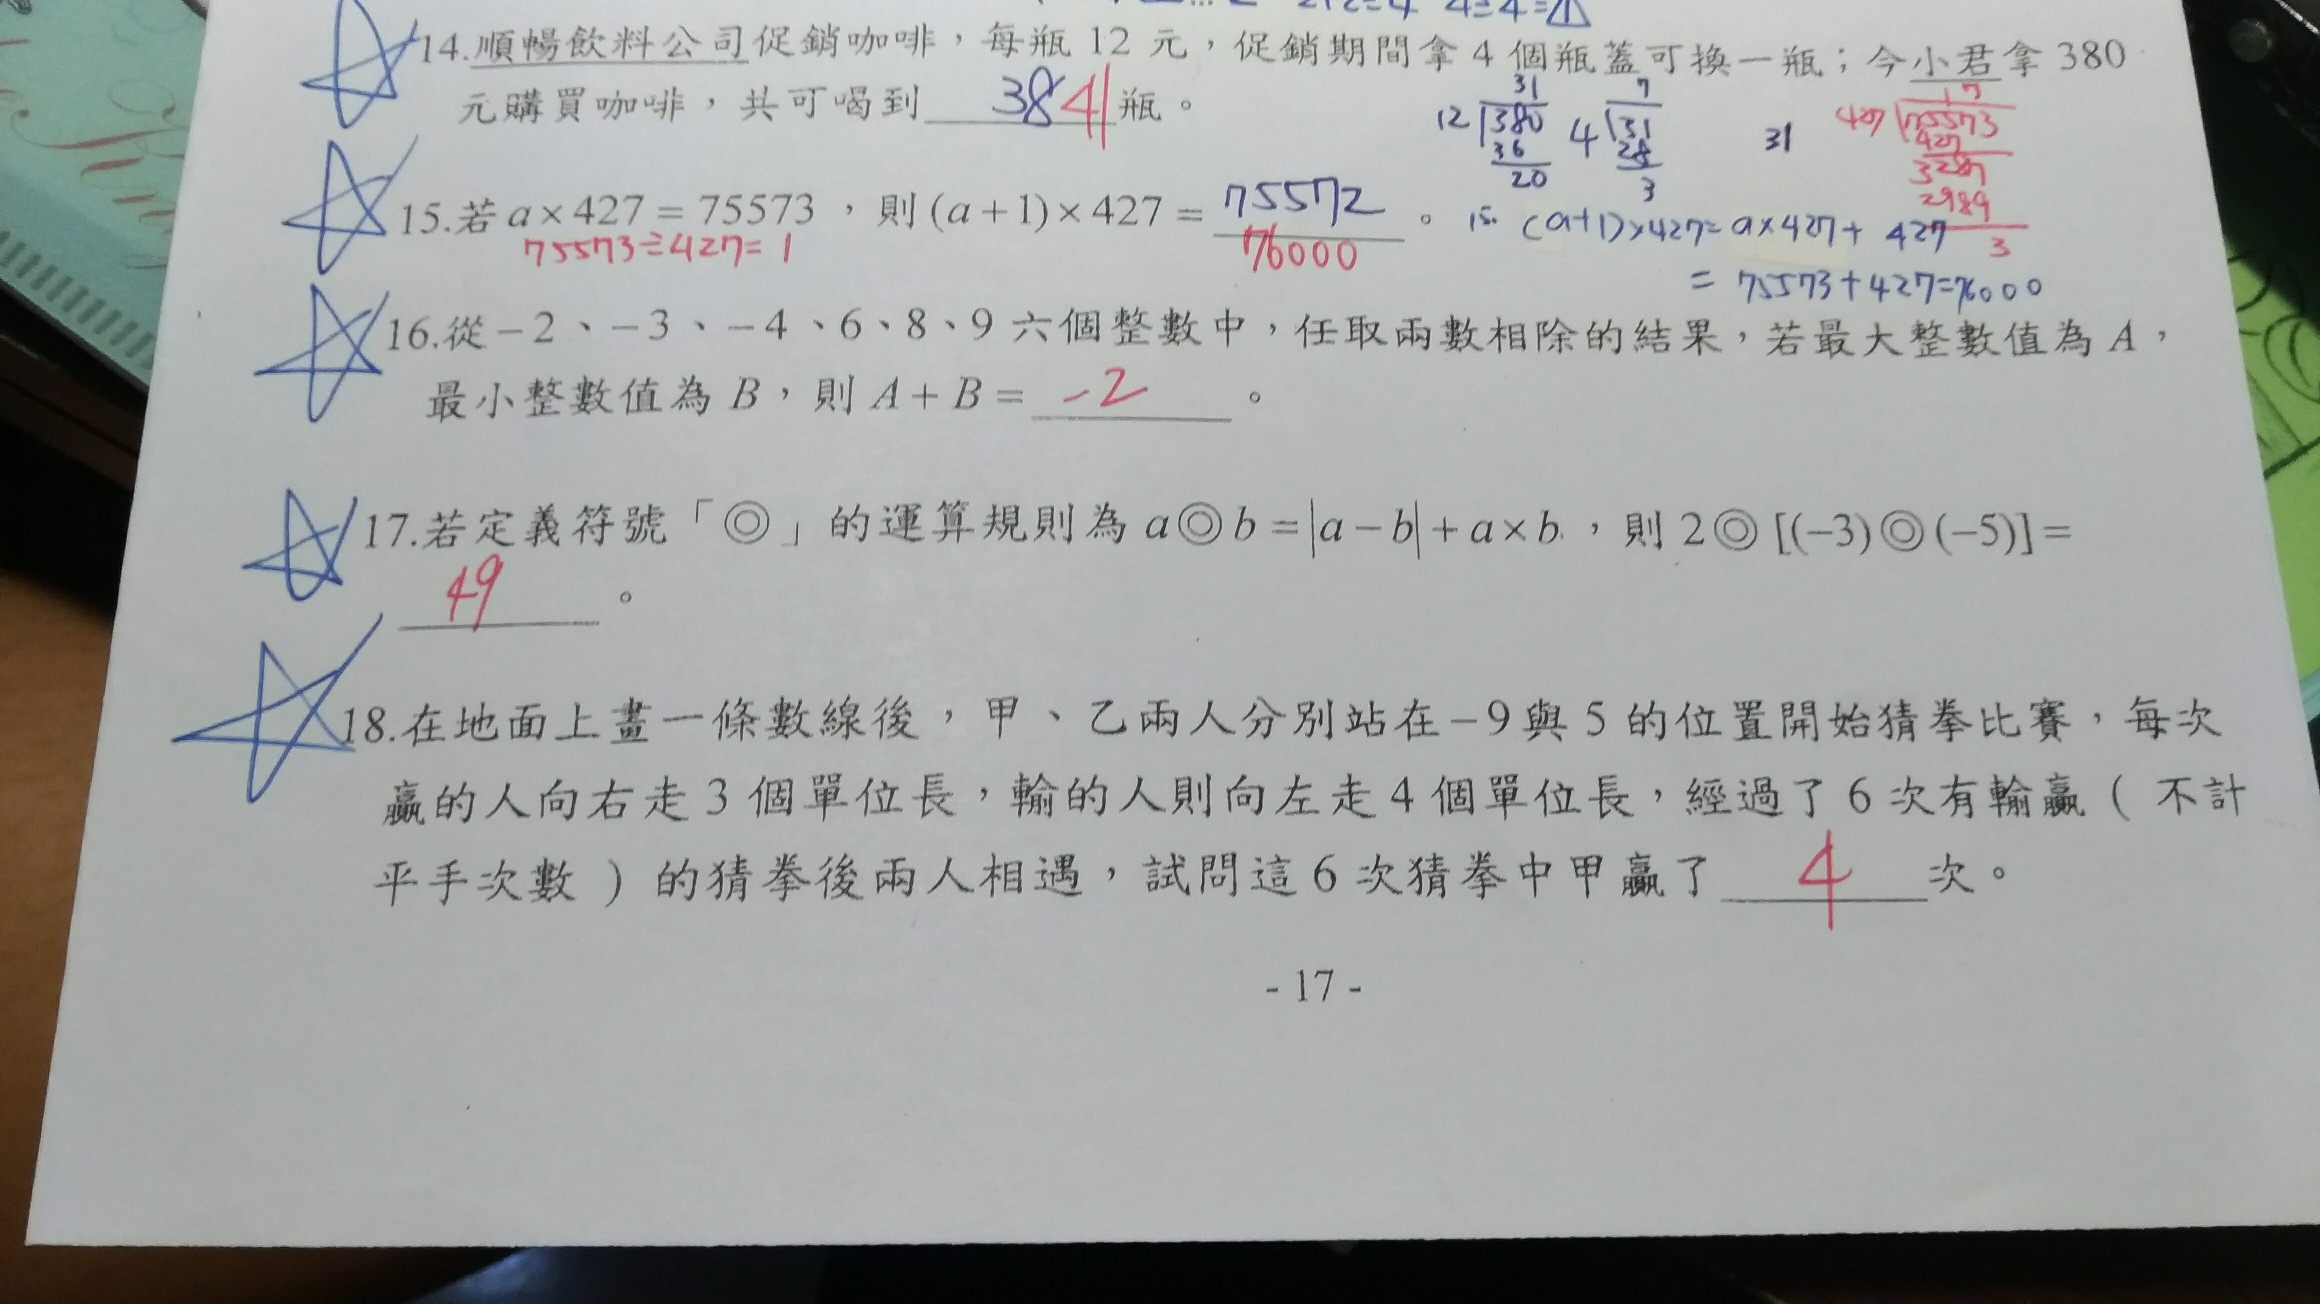 2+2=4 4÷4=1
14.順暢飲料公司促銷咖啡，每瓶 12 元，促銷期間拿 4 個瓶蓋可換一瓶；今小君拿 380
元購買咖啡，共可喝到 38 41 瓶。
31
12 380
36
20
7
4 31
28
3
31
17
427 75573
427
3287
2989
3
15.若 a×427＝75573，則 (a＋1)×427＝ 75572 。
75573÷427=1
76000
15. (a+1)×427=a×427+427
=75573+427=76000
16.從－2、－3、－4、6、8、9 六個整數中，任取兩數相除的結果，若最大整數值為 A，
最小整數值為 B，則 A＋B＝ -2 。
17.若定義符號「◎」的運算規則為 a◎b＝|a－b|＋a×b，則 2◎[(－3)◎(－5)]＝
49 。
18.在地面上畫一條數線後，甲、乙兩人分別站在－9與 5 的位置開始猜拳比賽，每次
贏的人向右走 3 個單位長，輸的人則向左走 4 個單位長，經過了 6 次有輸贏（不計
平手次數）的猜拳後兩人相遇，試問這 6 次猜拳中甲贏了 4 次。
- 17 -